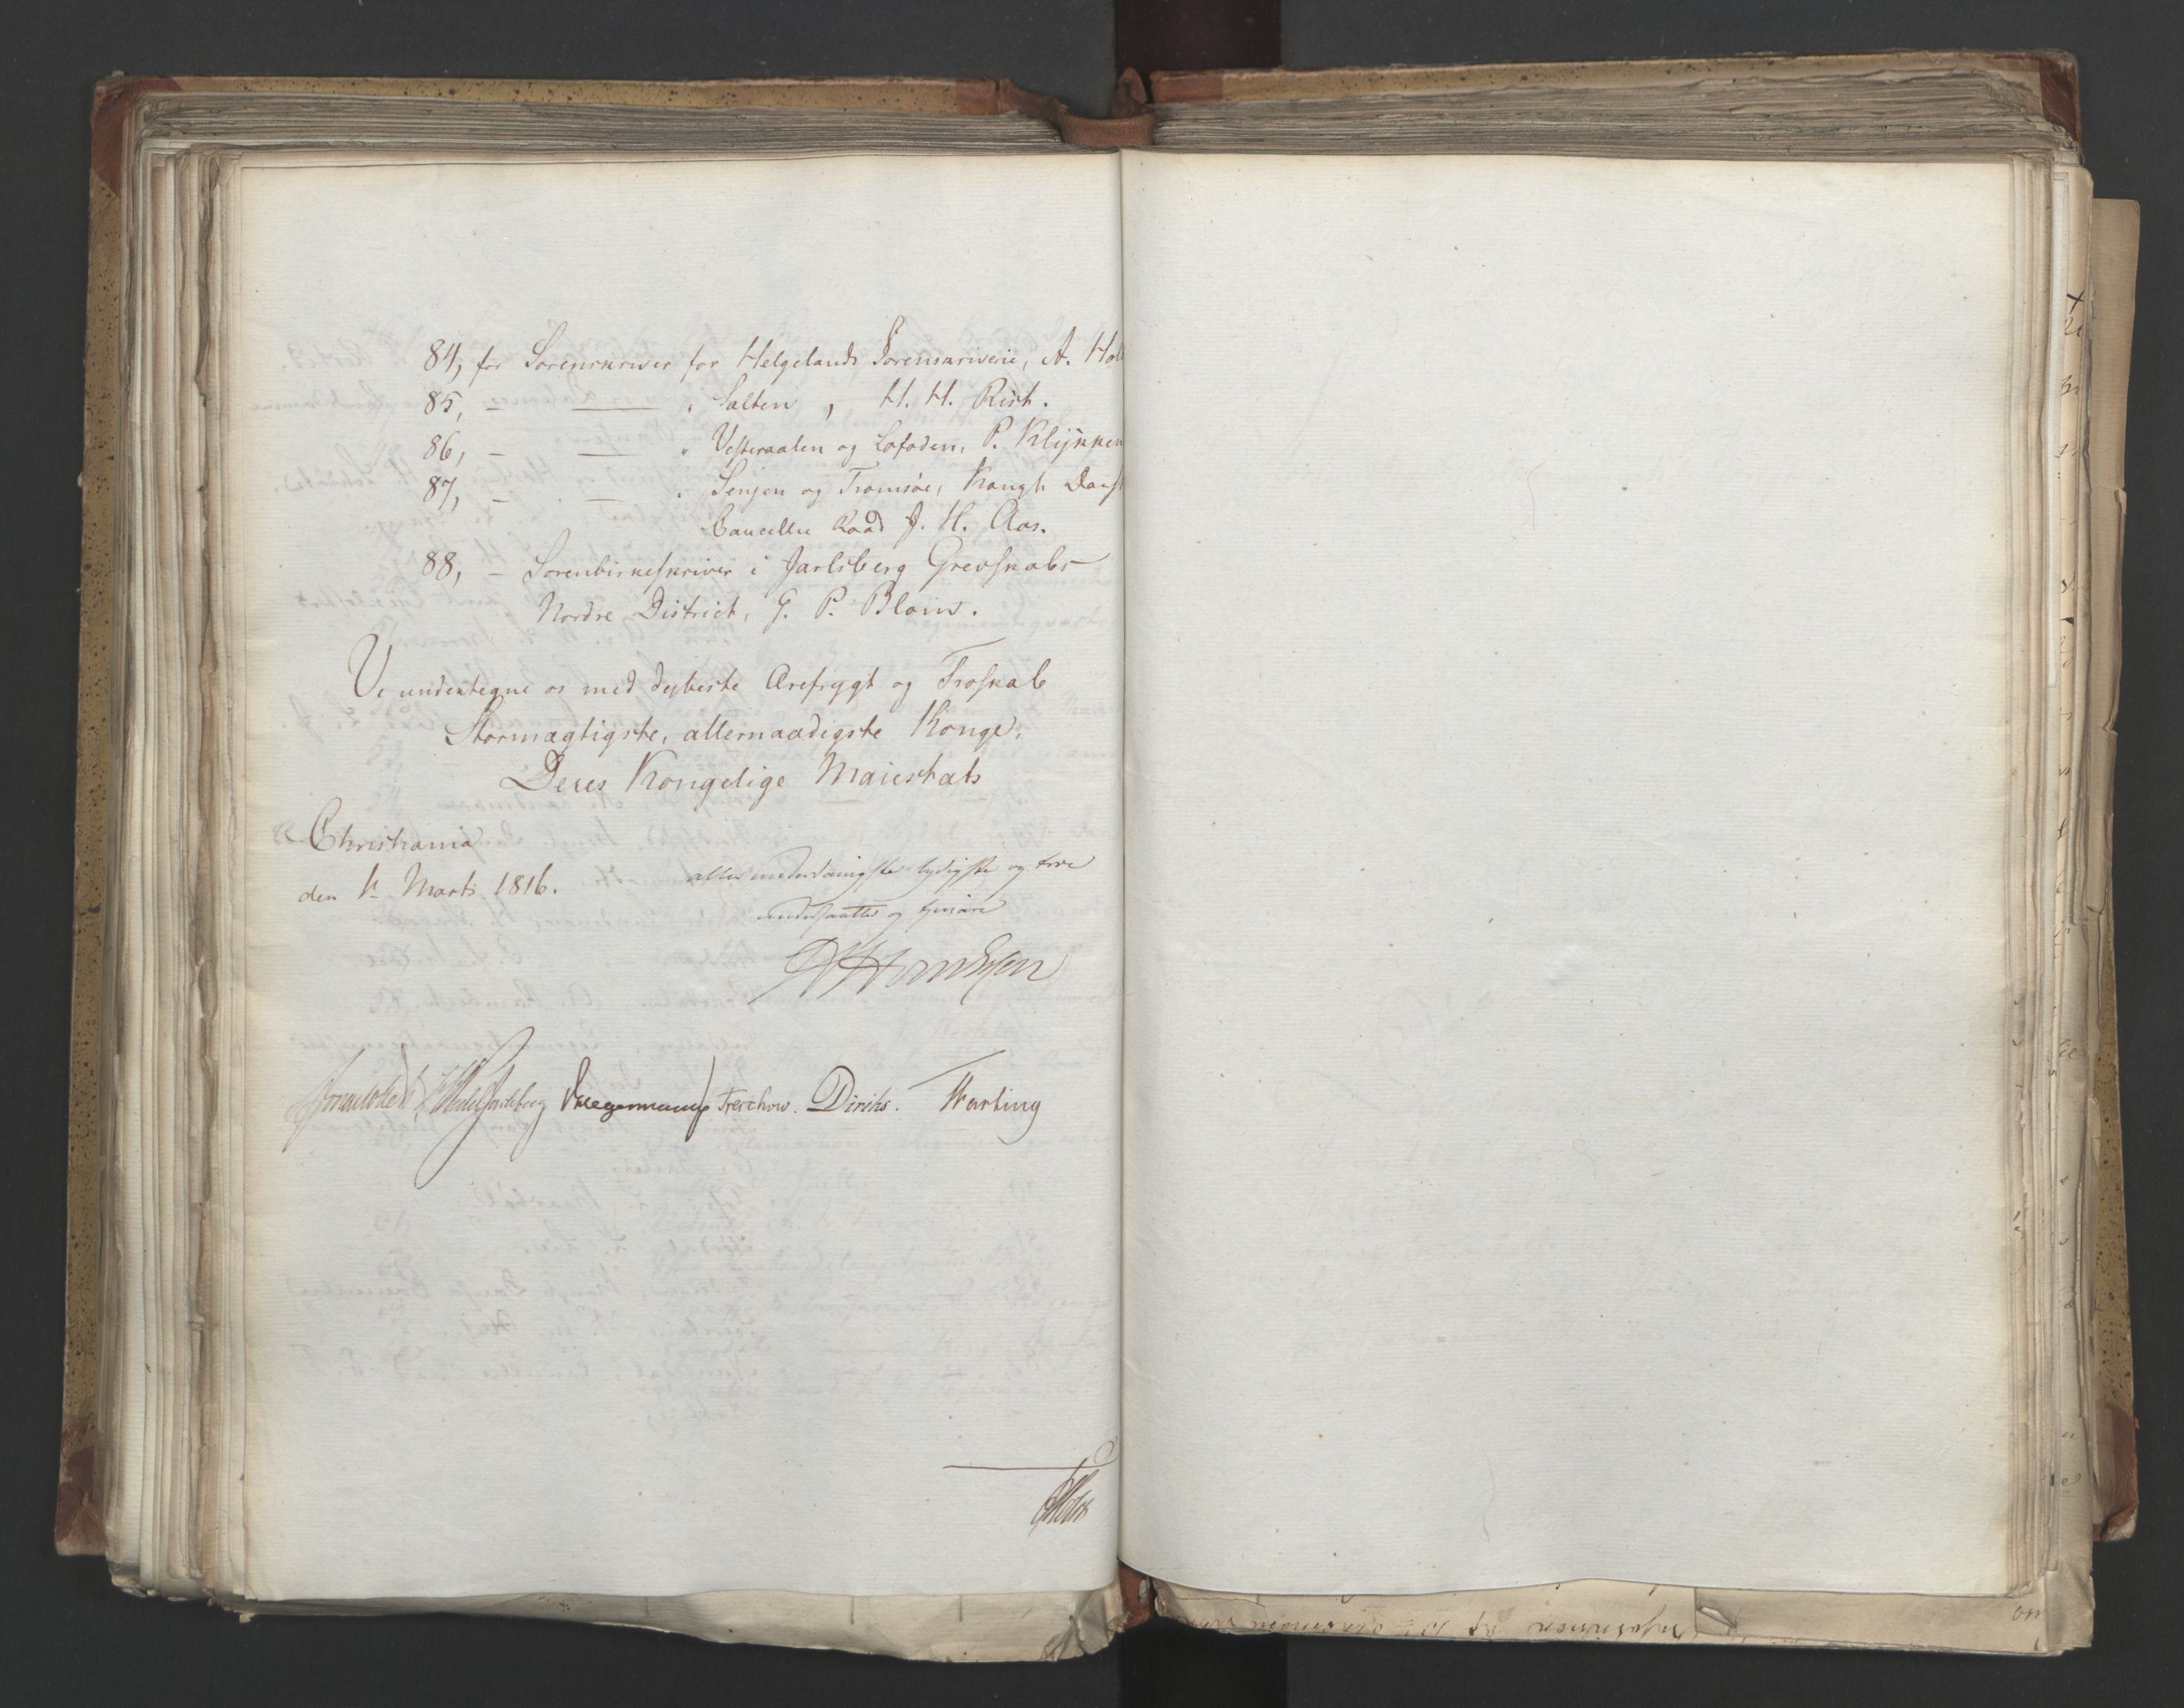 84, for Sorenskriver for Helgelands Sorenskriverie, A. Hol
85, - — " Salten, H. H. Rist.
86, - — " Vesteraalen og Lofoden, P. Klykken
87, - — " Senjen og Tromsöe, Kongl. Dansk
Cancellie Raad J. H. Aas.
88, - Sorenbirkeskriver i Jarlsberg Grevskabs
Nordre District, G. P. Blom.
Vi undertegne os med dybeste Ærefrygt og Troskab
Stormægtigste, allernaadigste Konge,
Deres Kongelige Maiestæts
Christiania
den Marts 1816.
allerunderdanigste lydigste og troe
undersaatter og tjenere
Sommerhielm Wedel Jarlsberg Kregerman Treschow. Diriks. Harting
Holst